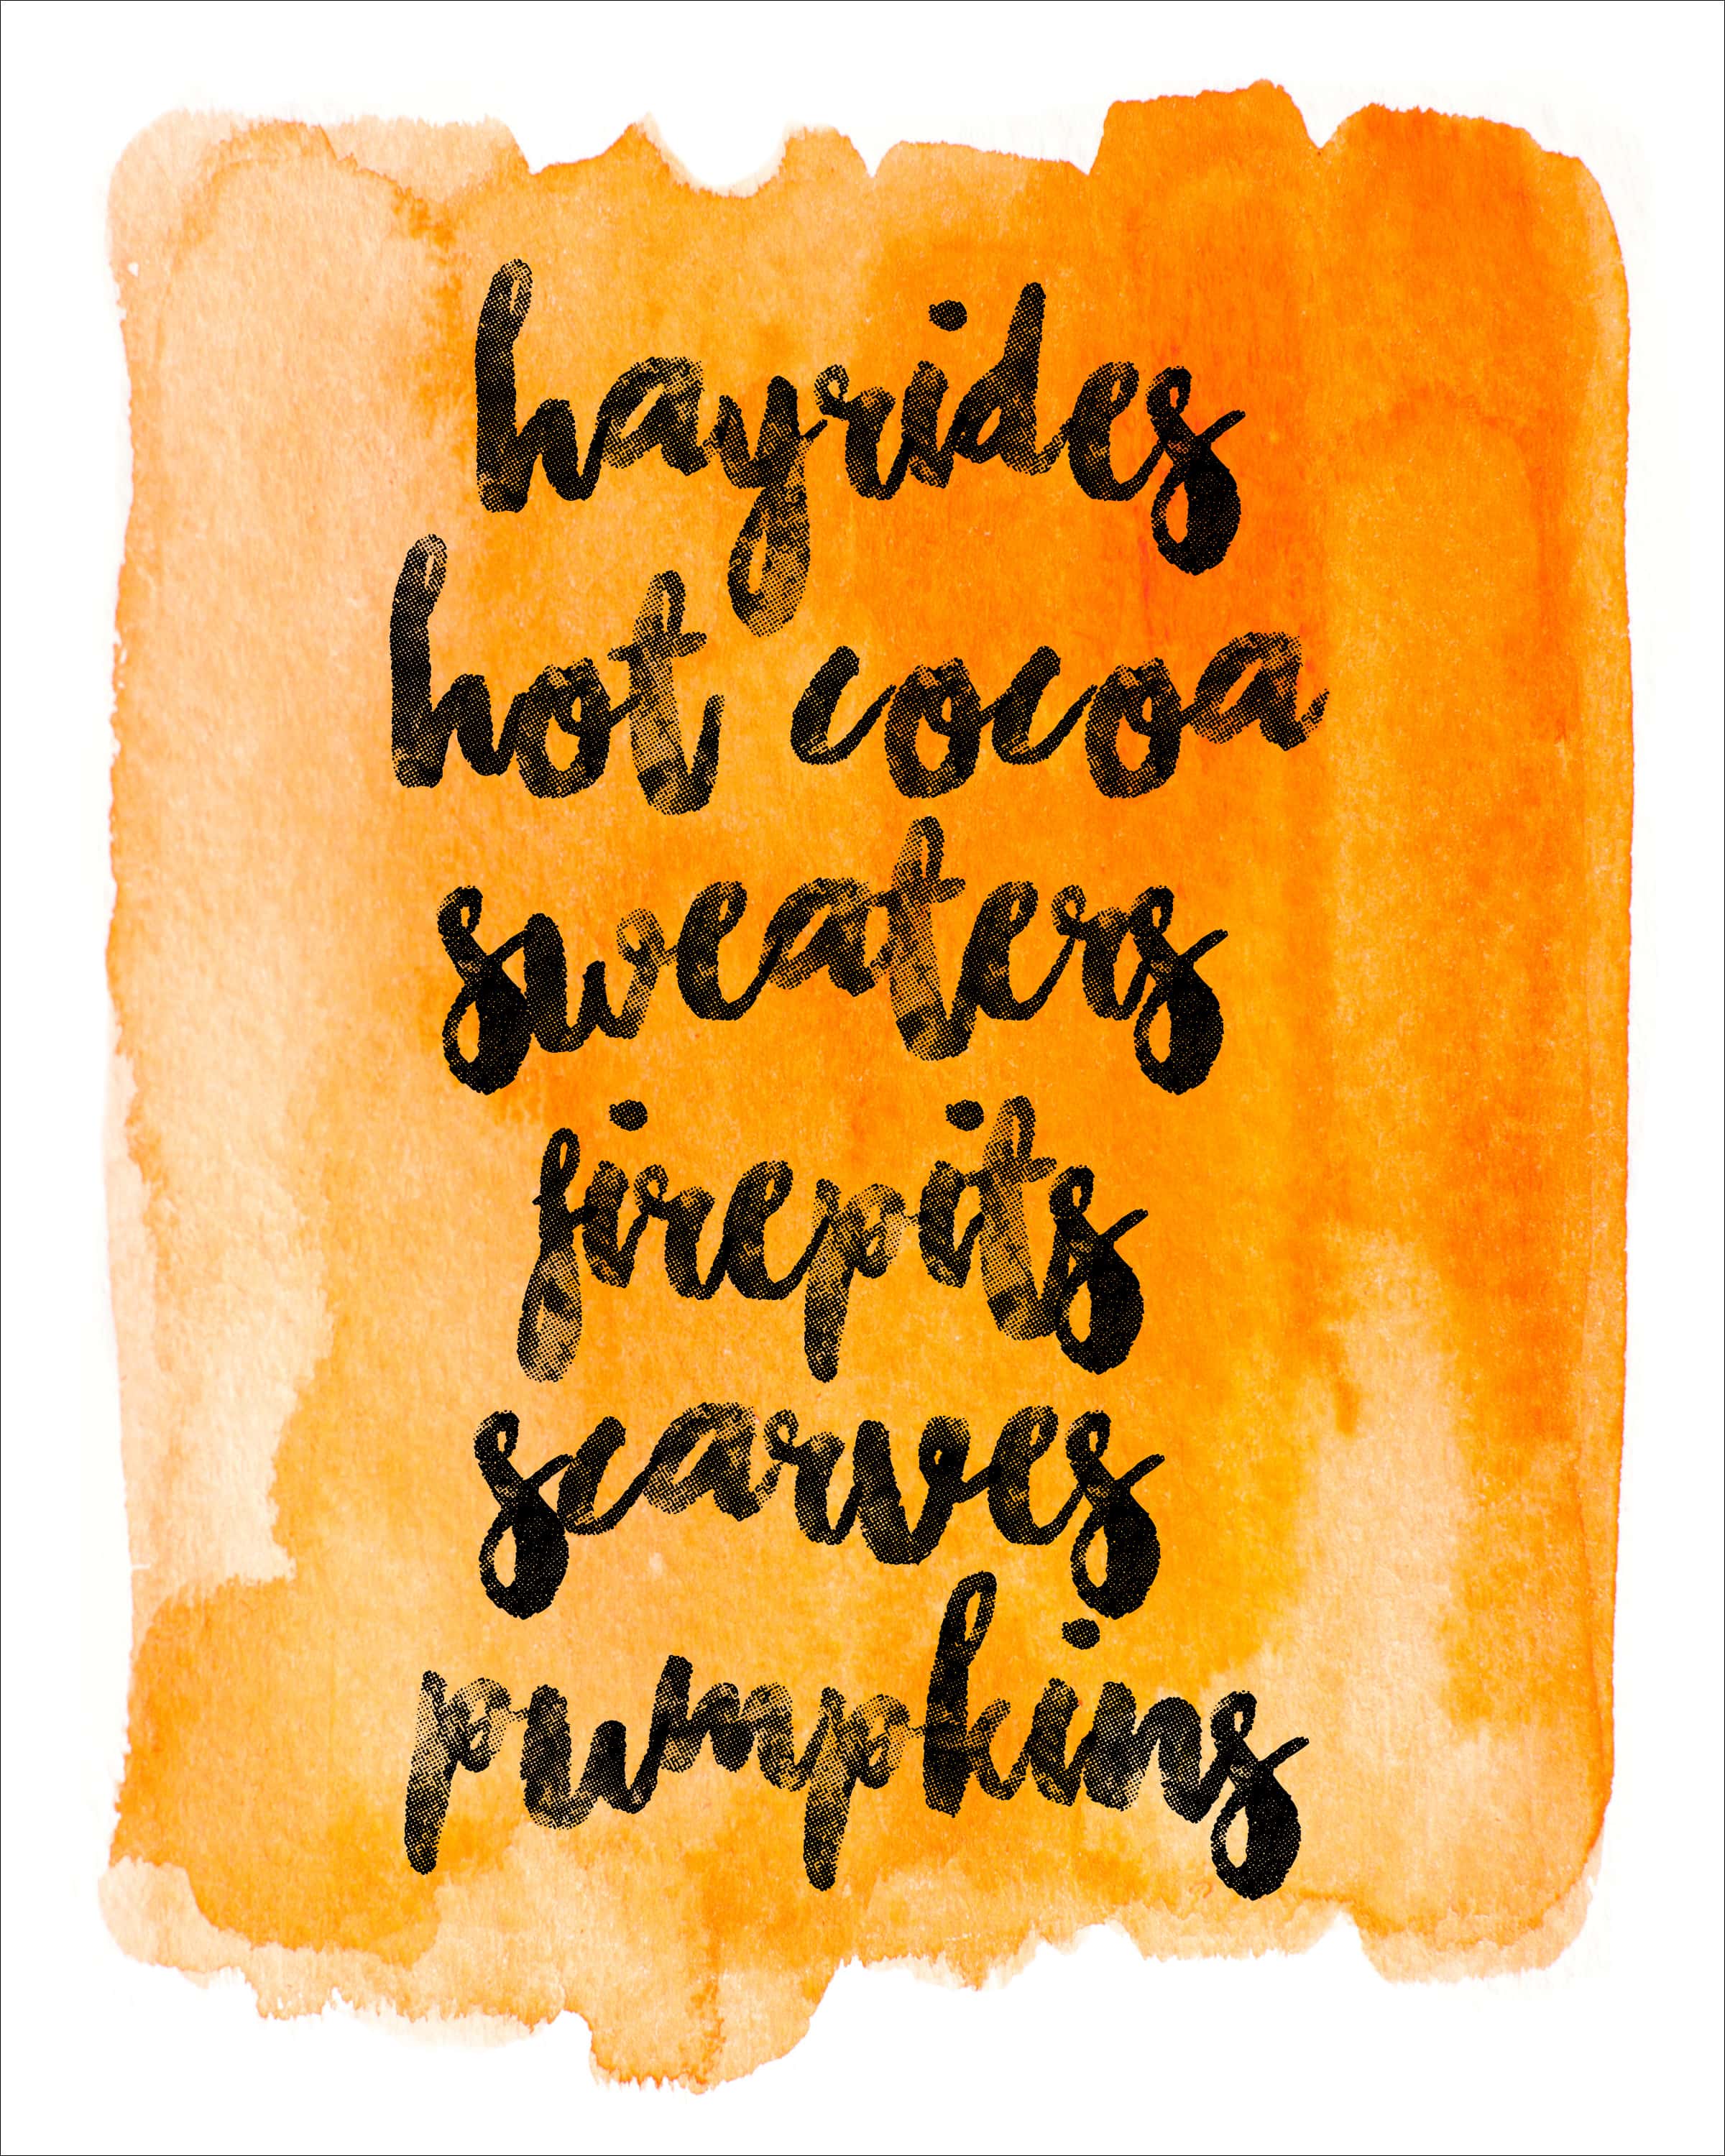 hayrides
hot cocoa
sweaters
firepits
scarves
pumpkins